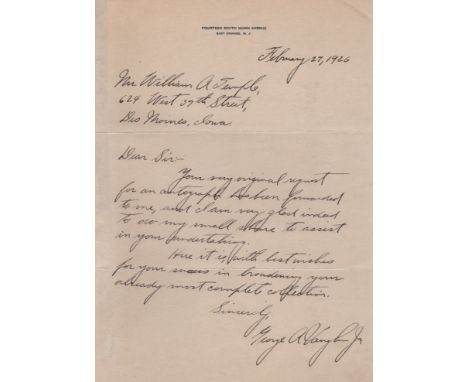 FOURTEEN SOUTH MUNN AVENUE
EAST ORANGE, N. J.
February 27, 1926
Mr William A Temple,
624 West 39th Street,
Des Moines, Iowa
Dear Sir:-
Your very original request
for an autograph has been forwarded
to me, and I am very glad indeed
to do my small share to assist
in your undertaking.
Here it is, with best wishes
for your success in broadening your
already most complete collection.
Sincerely,
George A Vaughn Jr